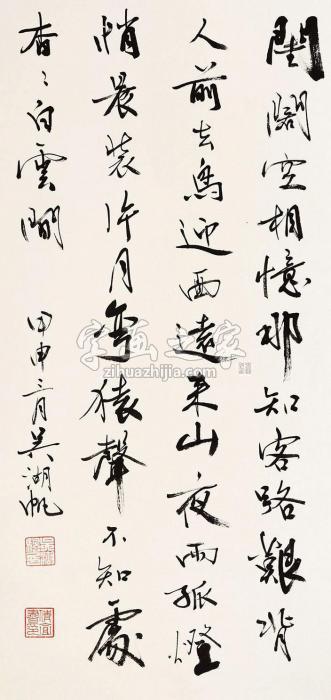 闊空相憶那知客路艱背
人前去鳥迎面遠來山夜雨孤燈
悄晨裝月彎猿聲不知處
杳〻白雲間
甲申月吳湖帆
字画之家
zihuazhijia.com